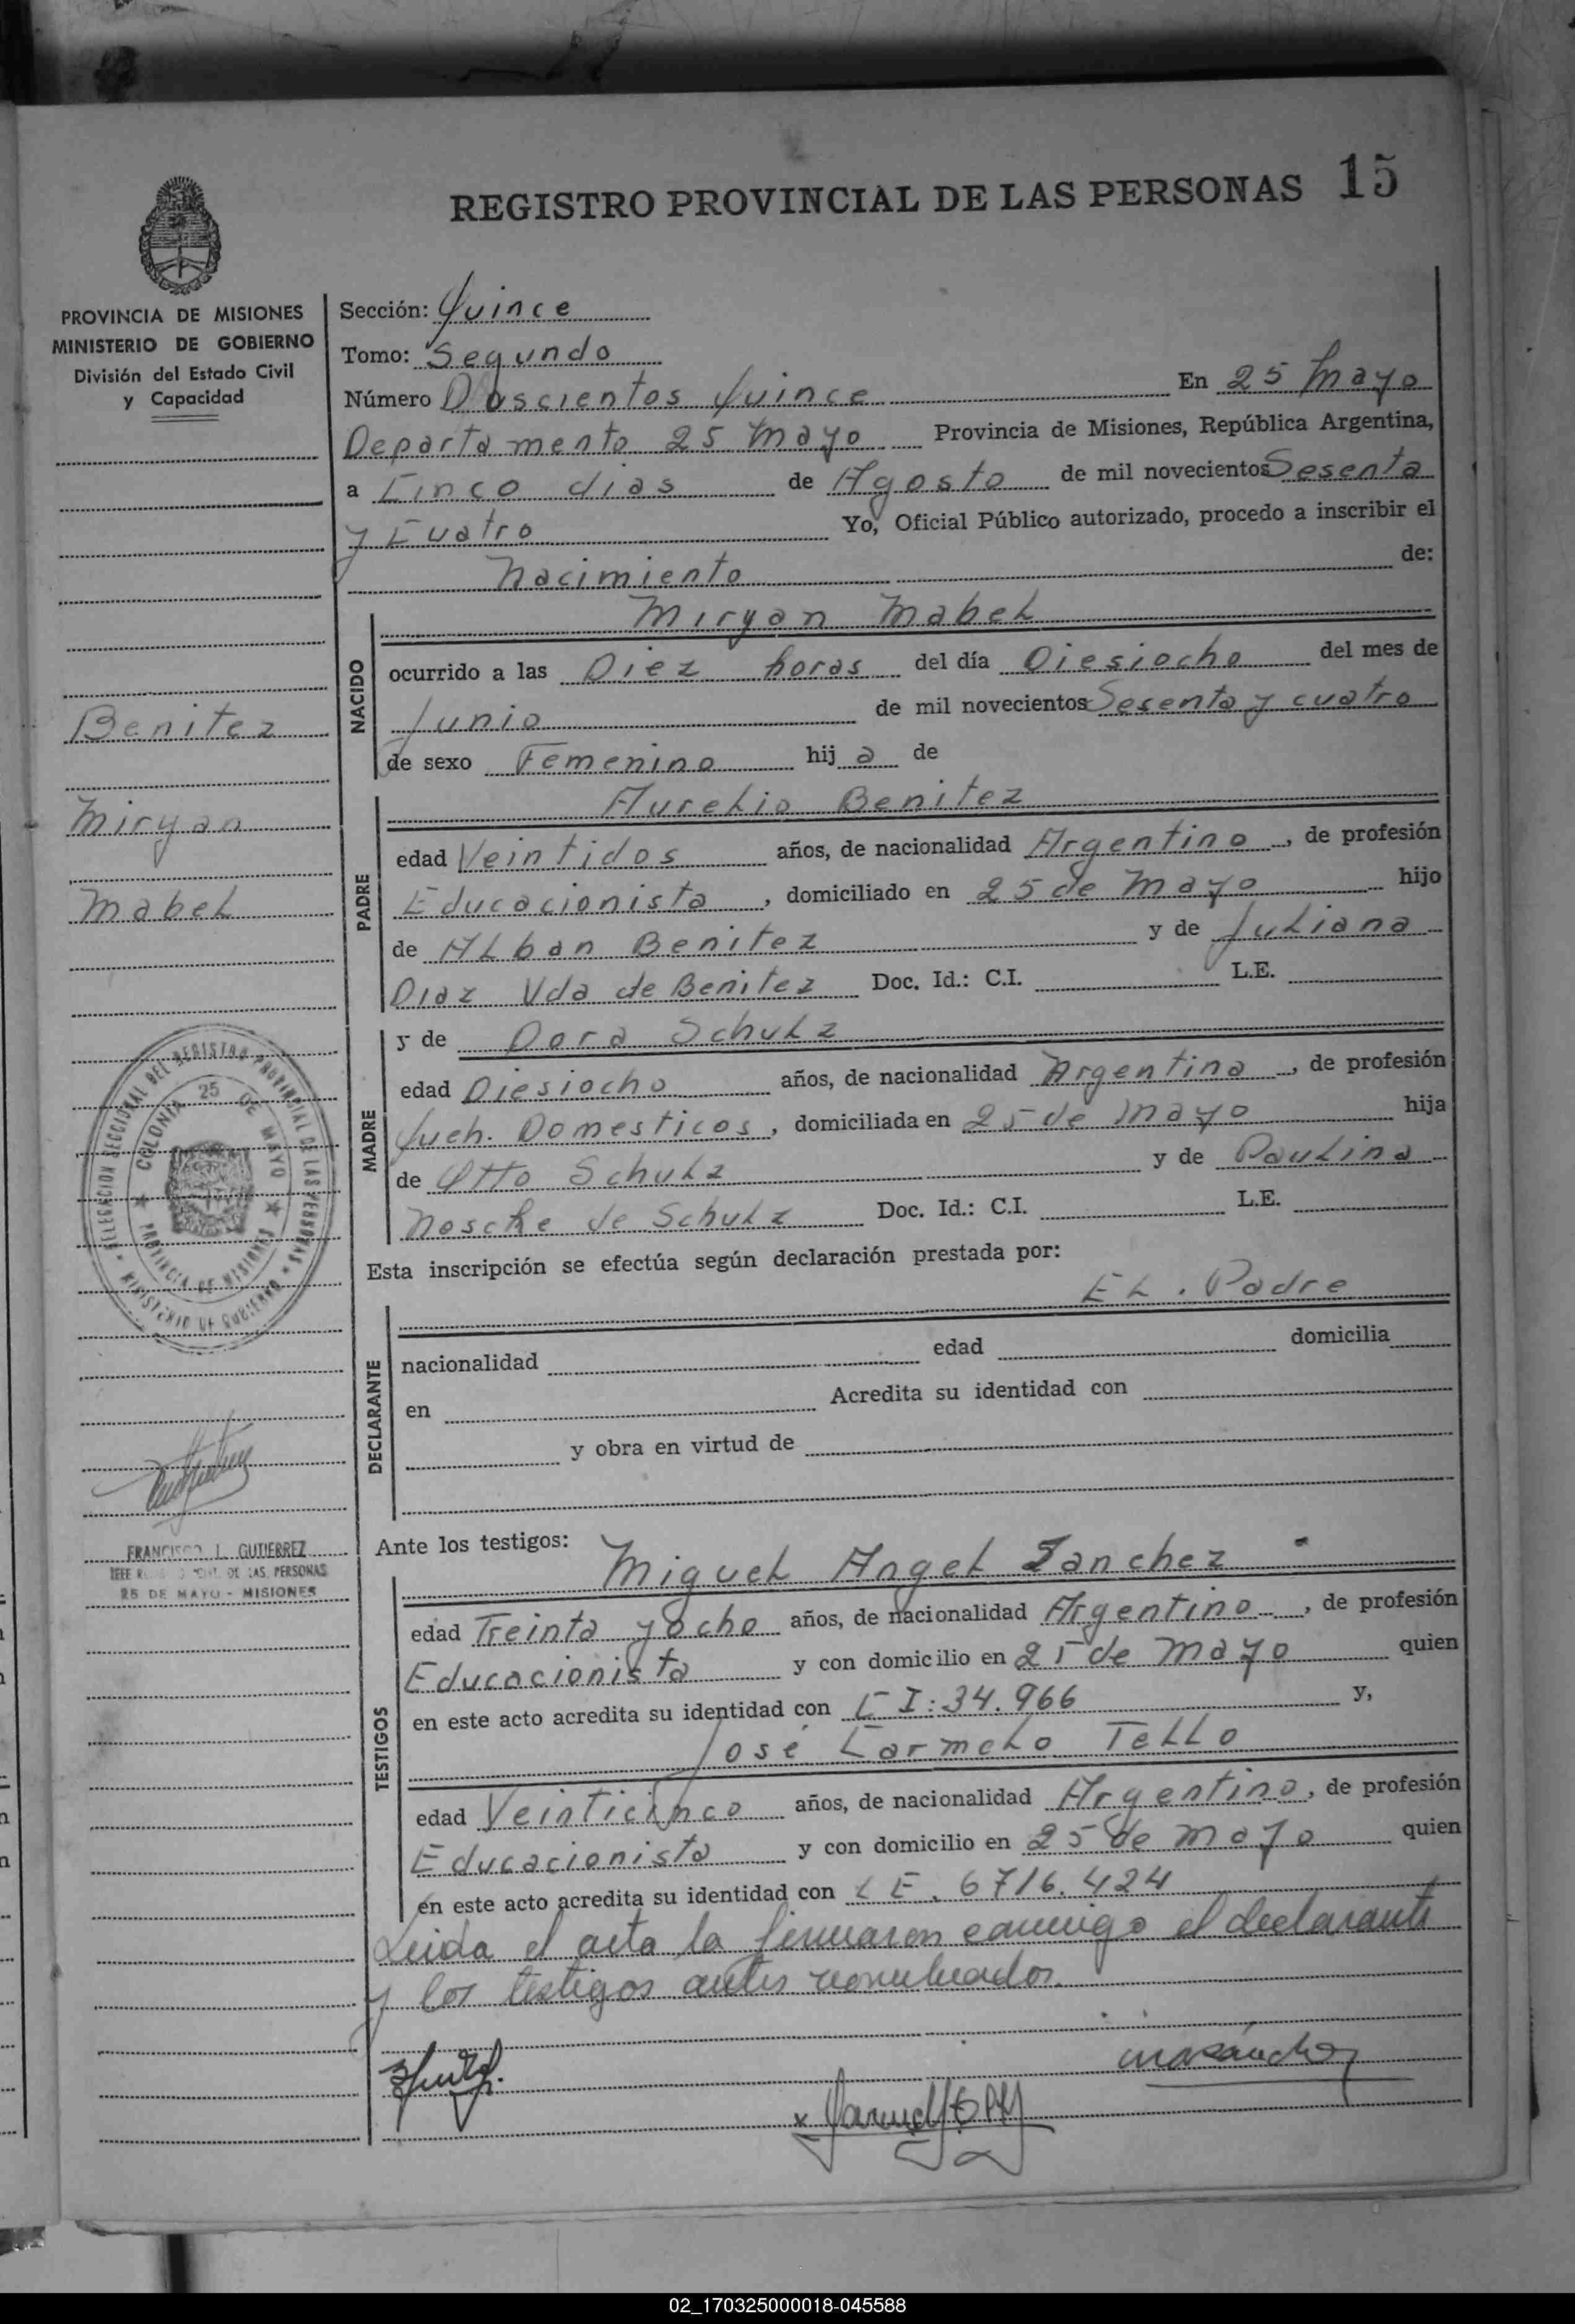 REGISTRO PROVINCIAL DE LAS PERSONAS 15
PROVINCIA DE MISIONES
MINISTERIO DE GOBIERNO
División del Estado Civil
y Capacidad
Benitez
Miryan
Mabel
DELEGACION SECCIONAL DEL REGISTRO PROVINCIAL DE LAS PERSONAS
MINISTERIO DE GOBIERNO
COLONIA 25 DE MAYO
PROVINCIA DE MISIONES
FRANCISCO L. GUTIERREZ
JEFE DE LAS PERSONAS
25 DE MAYO - MISIONES
Sección: Quince
Tomo: Segundo
Número Doscientos Quince En 25 Mayo
Departamento 25 Mayo Provincia de Misiones, República Argentina,
a Cinco dias de Agosto de mil novecientos Sesenta
y Cuatro Yo, Oficial Público autorizado, procedo a inscribir el
Nacimiento de:
NACIDO
Miryan Mabel
ocurrido a las Diez horas del día Diesiocho del mes de
Junio de mil novecientos Sesenta y cuatro
de sexo Femenino hija de
PADRE
Aurelio Benitez
edad Veintidos años, de nacionalidad Argentino, de profesión
Educacionista, domiciliado en 25 de Mayo hijo
de Alban Benitez y de Juliana
Diaz Vda de Benitez Doc. Id.: C.I. L.E.
MADRE
y de Dora Schulz
edad Diesiocho años, de nacionalidad Argentina, de profesión
Queh. Domesticos, domiciliada en 25 de Mayo hija
de Otto Schulz y de Paulina
Noscke de Schulz Doc. Id.: C.I. L.E.
Esta inscripción se efectúa según declaración prestada por:
DECLARANTE
EL. Padre
nacionalidad edad domicilia
en Acredita su identidad con
y obra en virtud de
Ante los testigos:
TESTIGOS
Miguel Angel Zanchez
edad Treinta y ocho años, de nacionalidad Argentino, de profesión
Educacionista y con domicilio en 25 de Mayo quien
en este acto acredita su identidad con C I: 34.966 y,
José Carmelo Tello
edad Veinticinco años, de nacionalidad Argentino, de profesión
Educacionista y con domicilio en 25 de Mayo quien
en este acto acredita su identidad con L E. 6716.424
Leida el acta la firmaron conmigo el declarante
y los testigos antes nombrados.
02_170325000018-045588